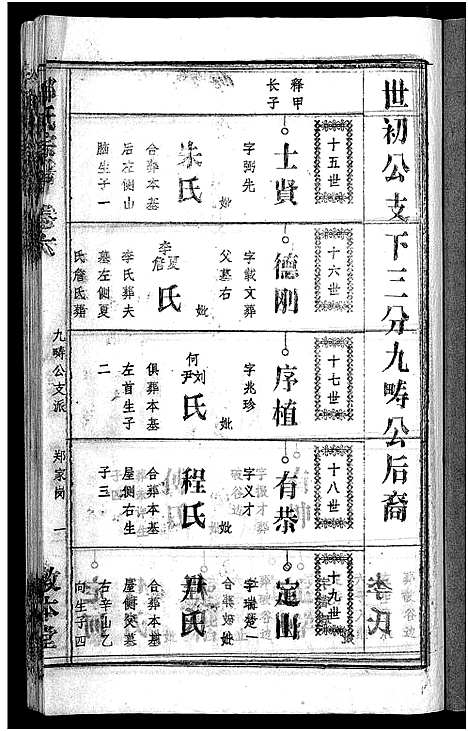 世初公支下三分九畴公后裔
十五世
释甲
长子
士贤
字弼先
妣
朱氏
合葬本基
后左侧山
脑生子一
十六世
德刚
字载文葬
父墓右
妣
李夏詹
氏
李氏葬夫
墓左侧夏
氏詹氏葬
十七世
序植
字兆珍
妣
何刘尹
氏
俱葬本基
左首生子
二
十八世
有恭
字义才
妣
程氏
合葬本基
屋侧右生
子三
十九世
定山
字瑞楚一
妣
尹氏
合葬本基
右辛山乙
向生子四
氏宗谱
卷六
九畴公支派
郑家岗
一
敦本堂